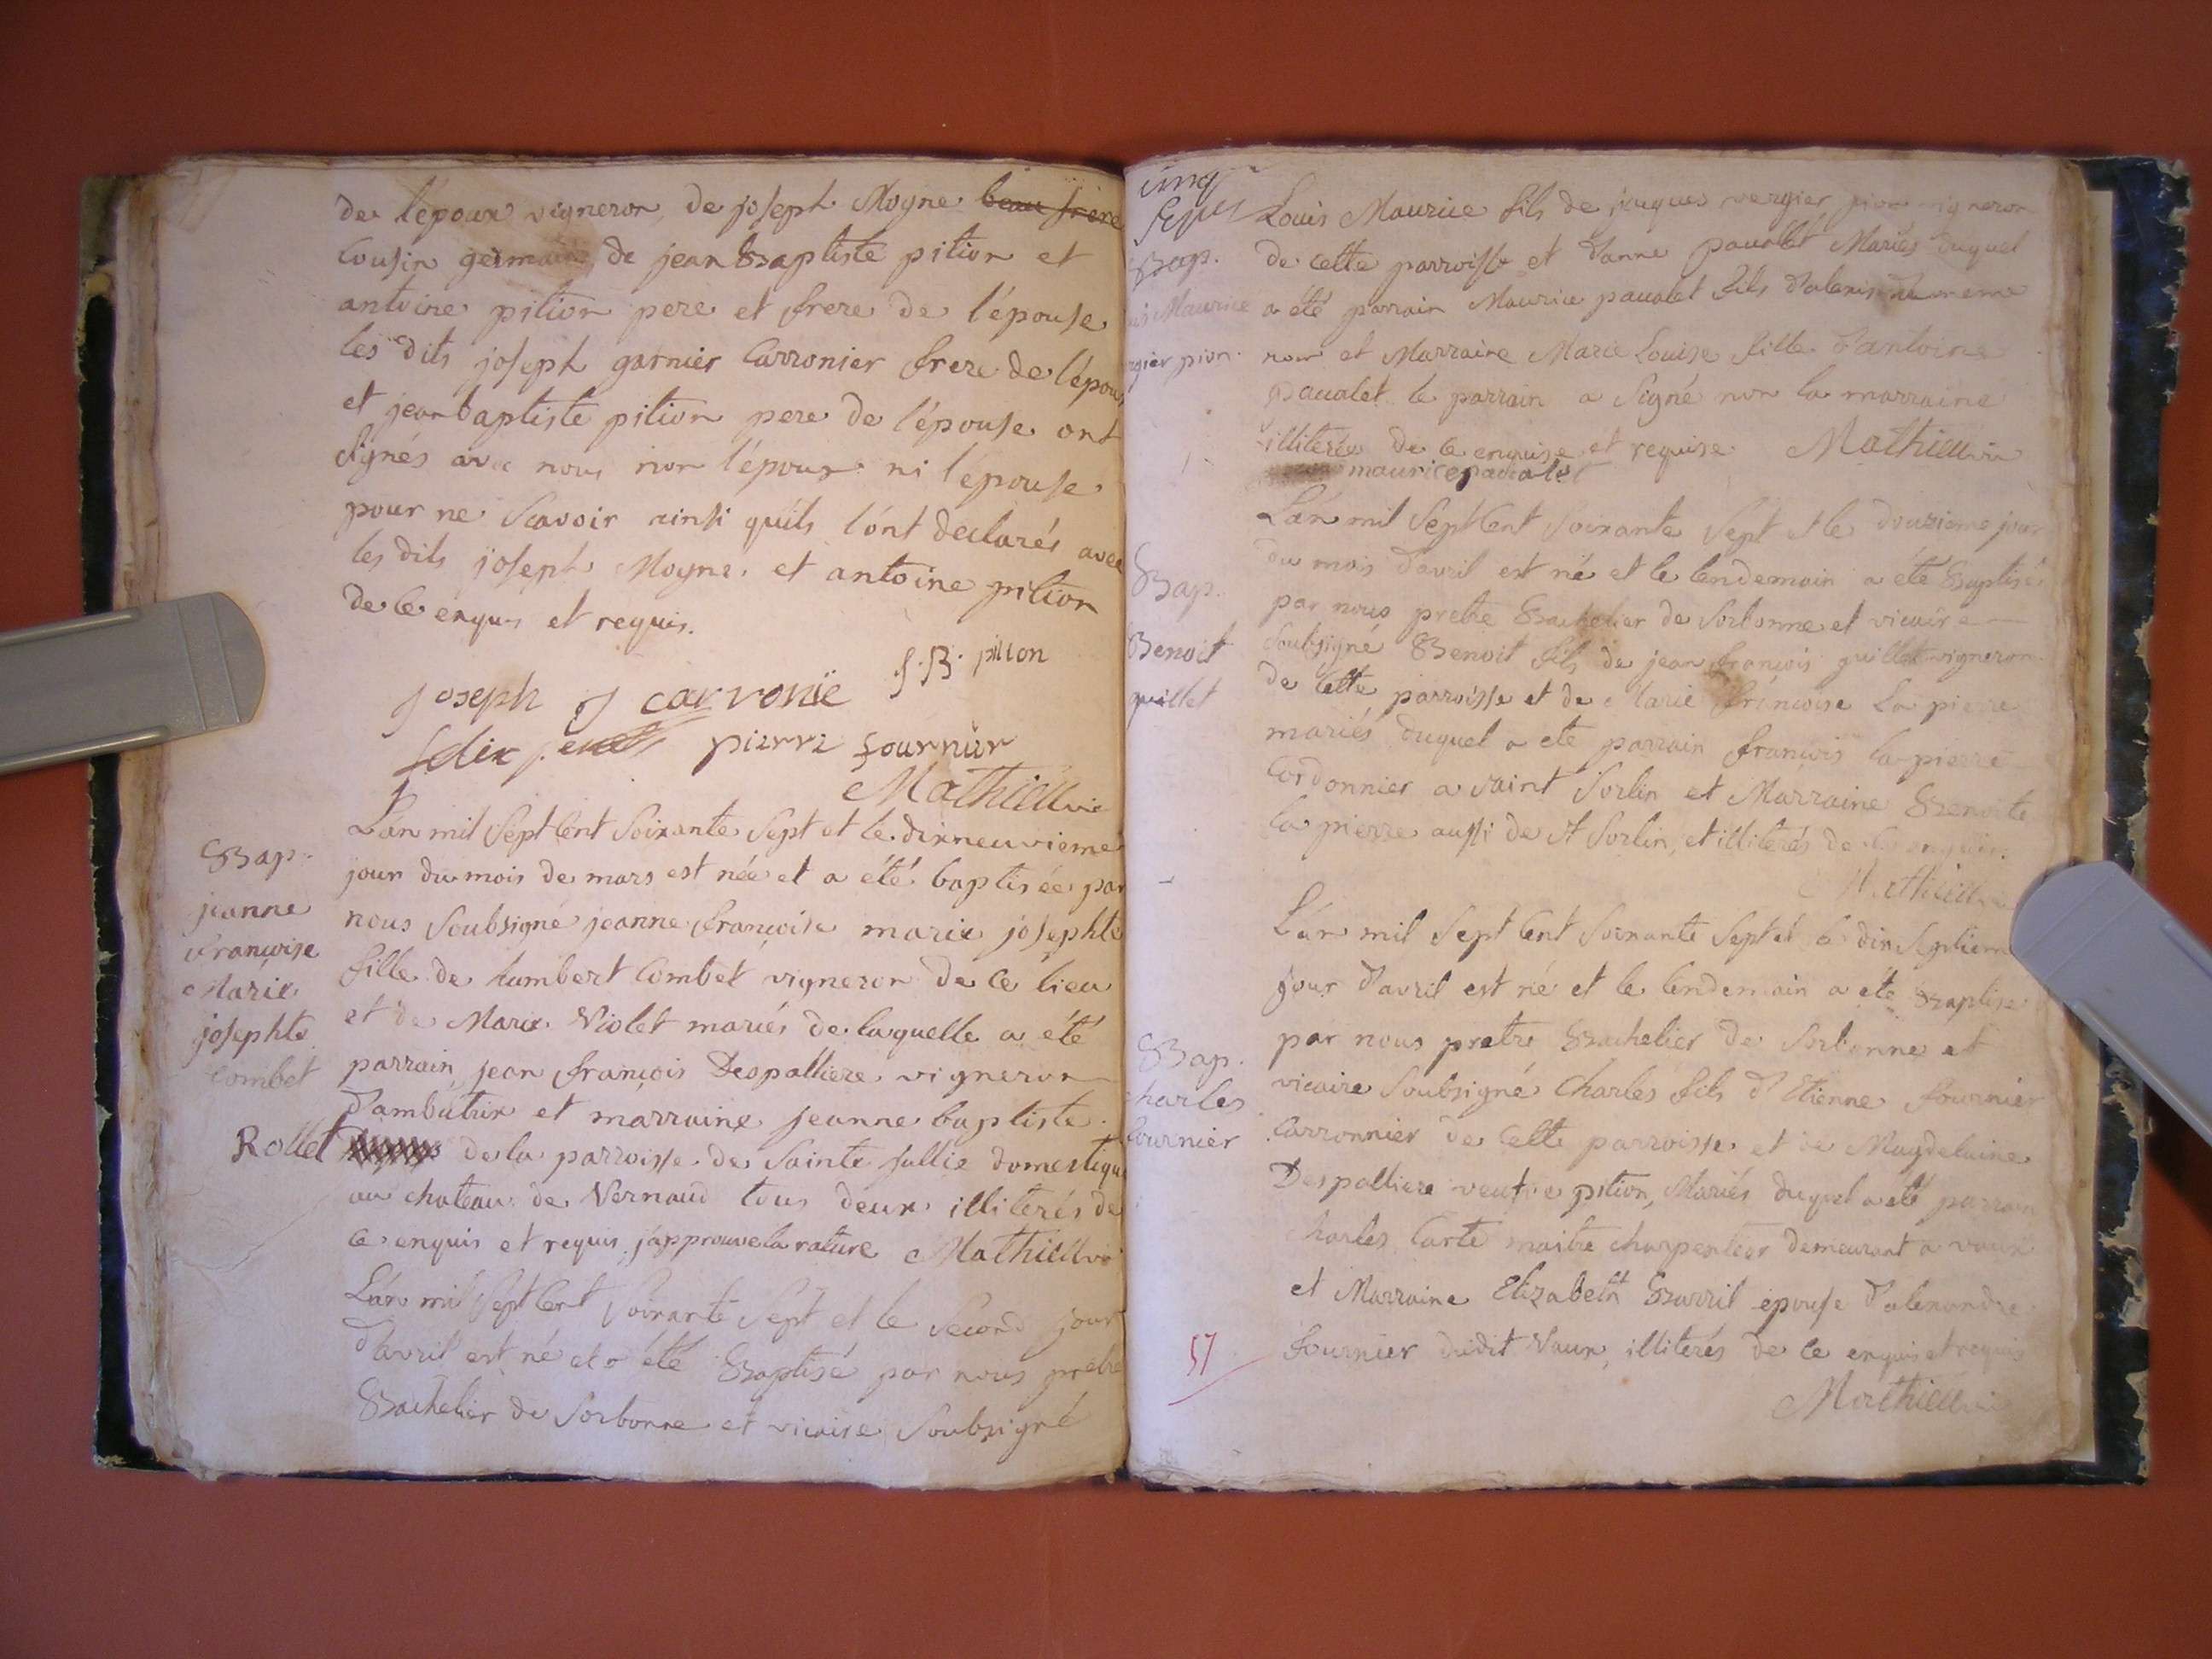 de l'epoux vigneron, de joseph Moyne beau frere
Cousin germain, de jean Baptiste pition et
antoine pition pere et frere de l'épouse
les dits joseph garnier Carronier frere de l'époux
et jean baptiste pition pere de l'épouse ont
signés avec nous non l'époux ni l'épouse
pour ne Scavoir ainsi quils l'ont declarés avec
les dits joseph Moyne et antoine pition
de ce enquis et requis.
J. B. pition
joseph J carronië
felix pierre fournier
Mathieu vic
L'an mil Sept Cent Soixante Sept et le dixneuvieme
jour du mois de mars est née et a été baptisée par
nous Soubsigné jeanne françoise marie josephte
fille de humbert Combet vigneron de ce lieu
et de Marie Violet mariés de laquelle a été
parrain jean françois Despalliere vigneron
d'ambutrix et marraine jeanne baptiste
Rollet de la parroisse de Sainte jullie domestique
au chateau de Vernaud tous deux illiterés de
ce enquis et requis. j'approuve la rature Mathieu vic
Bap.
jeanne
françoise
Marie
josephte
Combet
L'an mil Sept Cent Soixante Sept et le Second jour
d'avril est né et a été Baptisé par nous pretre
Bachelier de Sorbonne et vicaire Soubsigné
cinq
Sepes
Bap.
uis Maurice
rgier pion.
Louis Maurice fils de jacques vergier pion vigneron
de cette parroisse et d'anne paualet Mariés duquel
a été parrain Maurice paualet fils d'alexis du meme
nom et Marraine Marie Louise fille d'antoine
Paualet le parrain a Signé non la marraine
illiterée de ce enquise et requise Mathieu vic
maurice paualet
Bap.
Benoit
guillet
L'an mil Sept Cent Soixante Sept et le douzieme jour
du mois d'avril est né et le lendemain a été Baptisé
par nous pretre Bachelier de Sorbonne et vicaire
Soubsigné Benoit fils de jean françois guillet vigneron
de cette parroisse et de Marie françoise La pierre
mariés duquel a eté parrain françois la pierre
Cordonnier a saint Sorlin et Marraine Benoite
la pierre aussi de St Sorlin, et illiterés de ce enquis.
Mathieu vic
L'an mil Sept Cent Soixante Sept et le dix Septieme
jour d'avril est né et le lendemain a eté Baptise
par nous pretre Bachelier de Sorbonne et
vicaire Soubsigné Charles fils d'Etienne fournier
Carronnier de Cette parroisse et de Magdelaine
Despalliere veuve pition, Mariés duquel a eté parrain
harles Carte maitre charpentier demeurant a vaux
et Marraine Elizabeth Barril epouse d'alexandre
fournier dudit Vaux, illiterés de ce enquis et requis
Mathieu vic
Bap.
charles
fournier
57